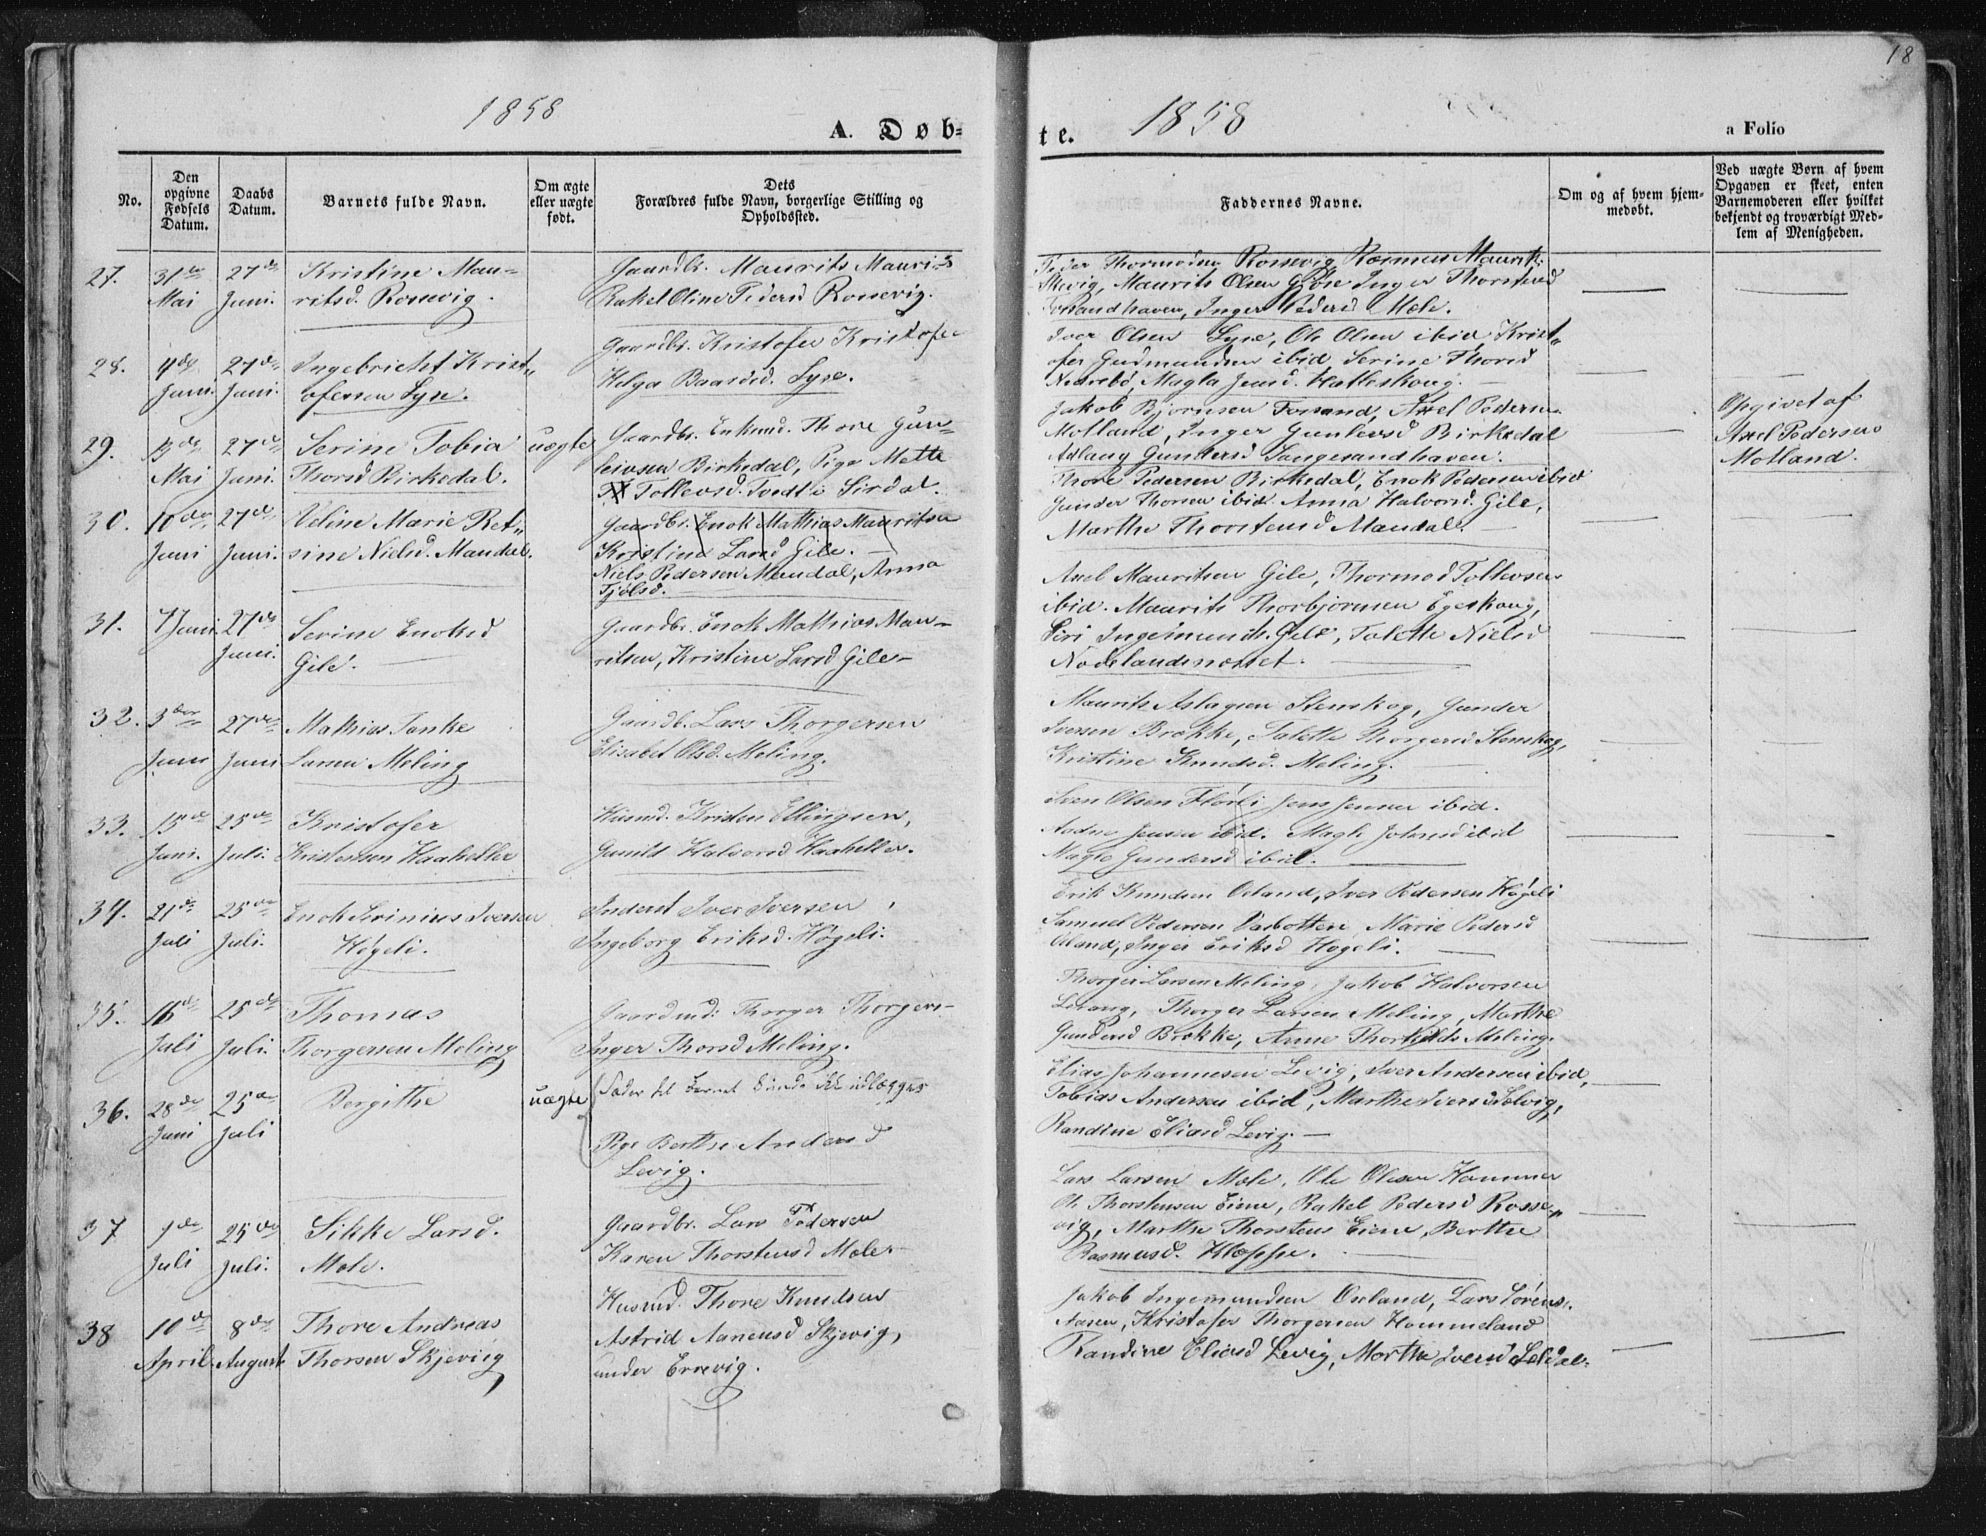 1858
A. Døb-
No.
Den opgivne Fødsels Datum.
Daabs Datum.
Barnets fulde Navn.
Om ægte eller uægte født.
Dets Forældres fulde Navn, borgerlige Stilling og Opholdssted.
27. 31te Mai 27de Juni.
Kristine Mau-
ritsd. Rossevig.
Gaardbr. Maurits Maurits
Rakel Oline Pedersd Rossevig.
28. 4de Juni. 27de Juni.
Ingebricht Krist-
ofersen Lyse.
Gaardbr. Kristofer Kristofer
Helga Baardsd. Lyse.
29. 13de Mai 27de Juni.
Serine Tobia
Thorsd Birkedal.
uægte
Gaardbr. Enkmd. Thore Gun-
leivsen Birkedal, Pige Mette
Tollevsd. Tvedt i Sirdal.
30. 10de Juni 27de Juni.
Veline Marie Bet-
sine Nielsd. Mandal.
Gaardbr. Enok Mathias Mauritsen
Kristine Larsd Gile.
Niels Pedersen Mandal, Anna
Tjølsd.
31. 7 Juni 27de Juni.
Serine Enoksd
Gile.
Gaardbr. Enok Mathias Mau-
ritsen, Kristine Larsd Gile
32. 3die Juni 27de Juni
Mathias Tanke
Larsen Meling
Gaardb. Lars Thorgersen
Elisabet Olsd. Meling.
33. 15de Juni. 25de Juli.
Kristofer
Kristensen Haaheller
Husmd. Kristen Ellingsen,
Gunild Halvorsd Haaheller.
34. 21de Juli 25de Juli.
Enok Sirinius Iversen
Høgeli.
Inderst Iver Iversen,
Ingeborg Eriksd. Høgeli.
35. 16de Juli 25de Juli.
Thomas
Thorgersen Meling
Gaardmd. Thorger Thorgers-
Inger Thorsd Meling.
36. 28de Juni 25de Juli
Bergithe
uægte
Fader til Barnet kunde ikke udlægges
Pige Berthe Andersd
Levig.
37 7de Juli 25de Juli.
Sikke Larsd.
Mele.
Gaardbr. Lars Pedersen
Karen Thorstensd Mele
38 10de April. 8de August
Thore Andreas
Thorsen Skjevig
Husmd. Thore Knudsen
Astrid Aanensd Skjevig,
under Errevig.
18
te.
1858
a Folio
Faddernes Navne.
Om og af hvem hjem-
medøbt.
Ved uægte Børn af hvem
Opgaven er skeet, enten
Barnemoderen eller hvilket
bekjendt og troværdigt Med-
lem af Menigheden.
Peder Thormodsen Rossevig Rasmus Maurits.
Skevig, Maurits Olsen Inger Thorstensd
Forsandhaven, Inger Pedersd Mele.
Iver Olsen Lyse, Ole Olsen ibid Krist-
ofer Gudmundsen ibid Serine Thorsd
Magla Jensd. Hatleskoug.
Jakob Bjørnsen Forsand, Axel Pedersen
Molland, Inger Gunlevsd Birkedal
Aslaug Gundersd
Opgivet af
Axel Pedersen
Molland.
Thore Pedersen Birkedal, Enok Pedersen ibid
Gunder Thorsen ibid Anna Halvorsd. Gile,
Marthe Thorstensd Mandal.
Axel Mauritsen Gile, Thormod Tollevsen
ibid. Maurits Thorbjørnsen Egeskoug,
Siri Ingemunds. Gile, Talette Nielsd
Nodelandsnesset.
Maurits Aslagsen Stenskog, Gunder
Iversen Brække, Talette Thorgersd Stenskog,
Kristine Knudsd. Meling.
Sven Olsen Flørli Jens Jensen ibid.
Aadne Jensen ibid. Magle Johnsd ibid
Magle Gundersd ibid.
Erik Knudsen Øsland, Iver Pedersen Høgeli
Samuel Pedersen Marie Pedersd
Inger Eriksd Høgeli.
Thorger Larsen Meling, Jakob Halvorsen
Levang, Thorger Larsen Meling, Marthe
Gundersd Brække, Anne Thorkilds Meling.
Elias Johannesen Levig, Iver Andersen ibid,
Tobias Andersen ibid, Marthe Iversd Solvig,
Randine Eliasd Levig.
Lars Larsen Mele, Ole Olesen Hammer
Ole Thorstensen Eiene, Rakel Pedersd Rosse-
vig, Marthe Thorstens Eiene, Berthe
Rasmusd. Kleppe.
Jakob Ingemundsen Øsland, Lars Sørens.
Aasen, Kristofer Thorgersen Hommeland
Randine Eliasd Levig, Marthe Iversd Seldal.